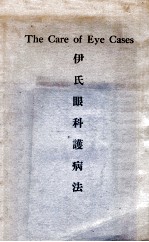 The Care of Eye Cases
伊氏眼科護病法